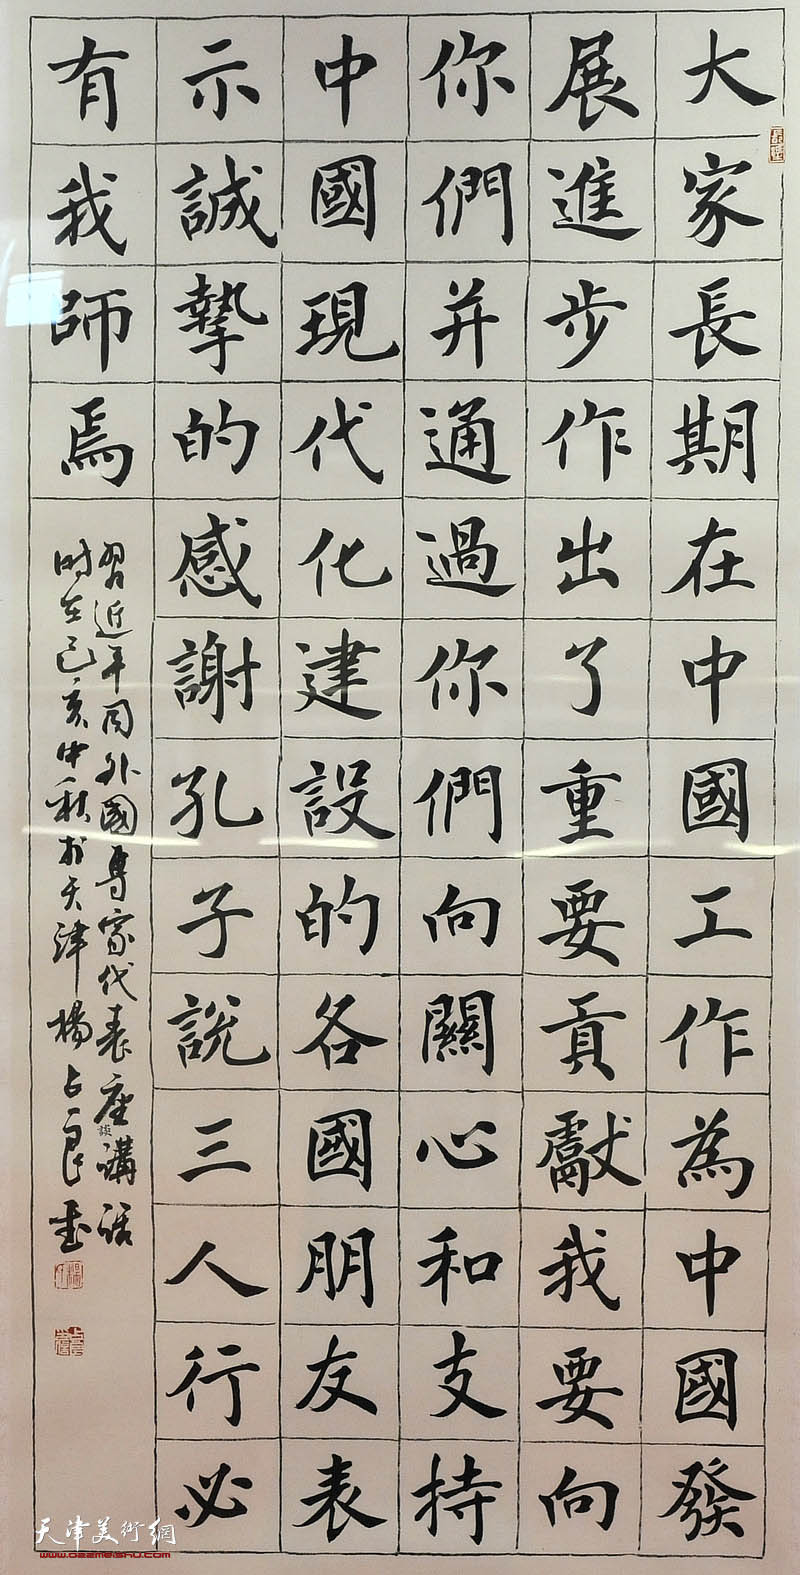 大家長期在中國工作為中國發
展進步作出了重要貢獻我要向
你們并通過你們向關心和支持
中國現代化建設的各國朋友表
示誠摯的感謝孔子說三人行必
有我師焉
習近平同外國專家代表座談講話
时在己亥中秋於天津楊占良書
天津美術網
www.022meishu.com